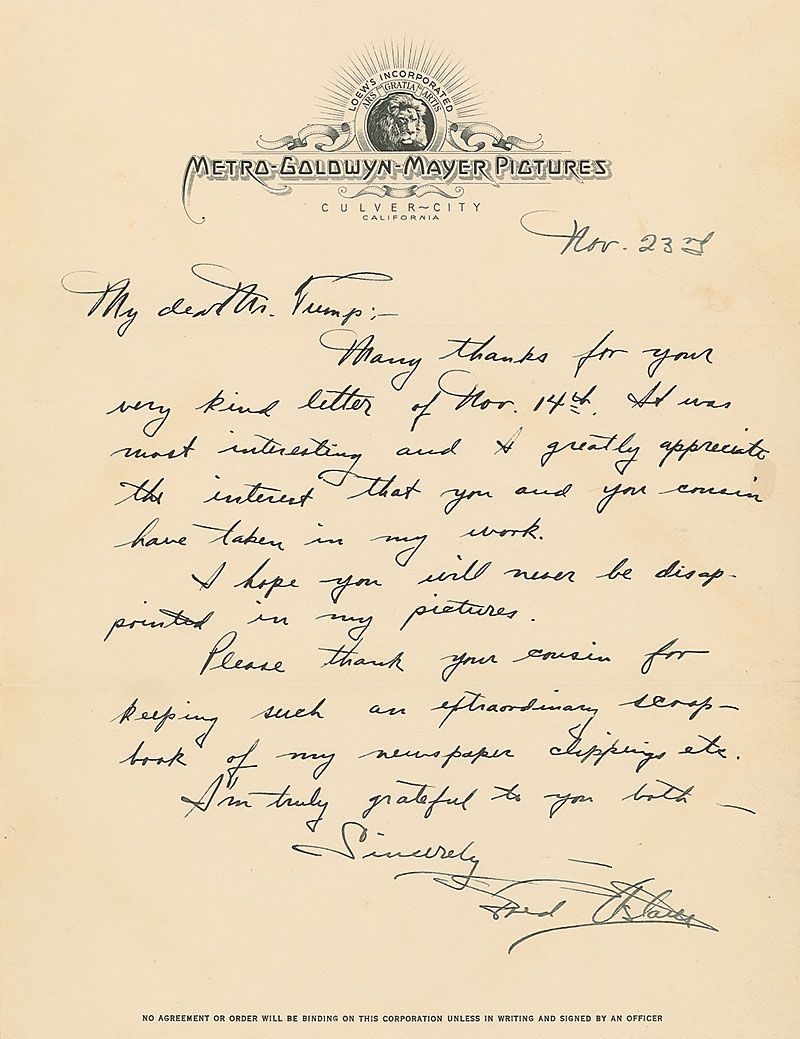 LOEW'S INCORPORATED
ARS GRATIA ARTIS
METRO-GOLDWYN-MAYER PICTURES
CULVER~CITY
CALIFORNIA
Nov. 23rd
My dear Mr. Tump:—
Many thanks for your
very kind letter of Nov. 14th. It was
most interesting and I greatly appreciate
the interest that you and you cousin
have taken in my work.
I hope you will never be disap-
pointed in my pictures.
Please thank your cousin for
keeping such an extraordinary scrap-
book of my newspaper clippings etc.
I'm truly grateful to you both —
Sincerely —
Fred Astaire
NO AGREEMENT OR ORDER WILL BE BINDING ON THIS CORPORATION UNLESS IN WRITING AND SIGNED BY AN OFFICER